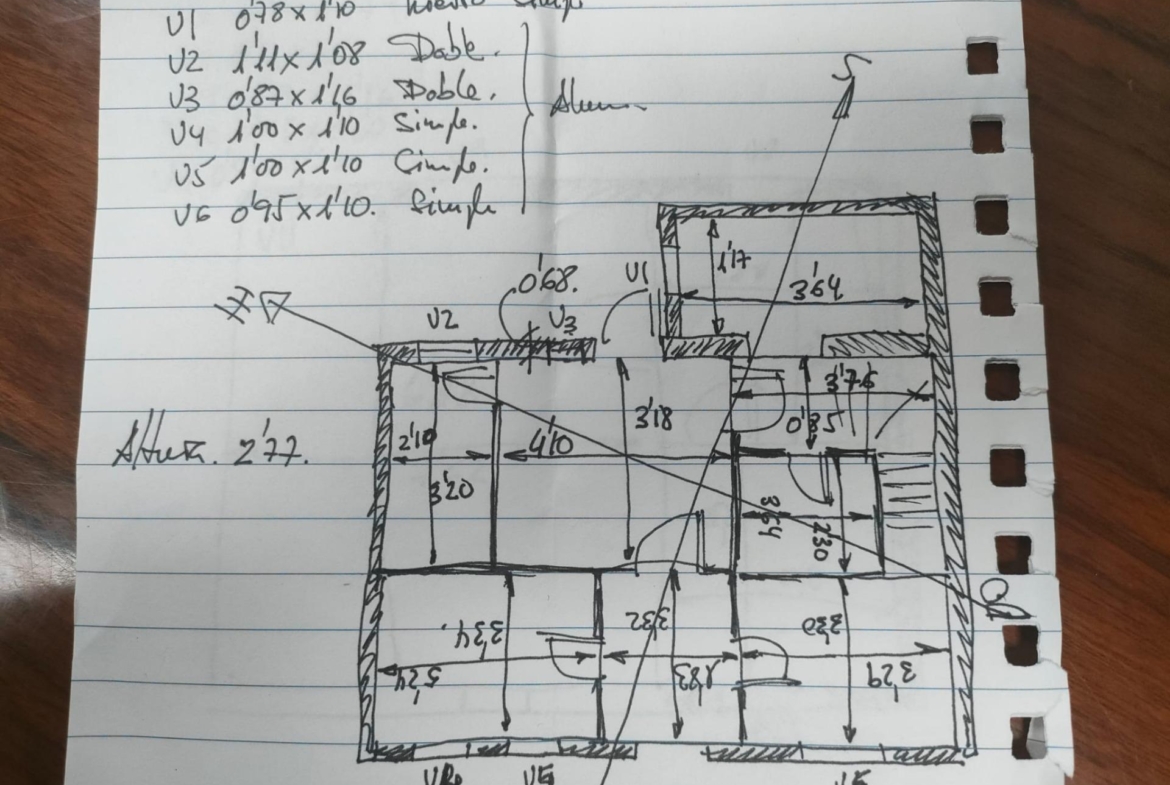 V1 0'78 x 1'10
V2 1'11 x 1'08 Doble.
V3 0'87 x 1'16 Doble.
V4 1'00 x 1'10 Simple.
V5 1'00 x 1'10 Simple.
V6 0'95 x 1'10. Simple
S
1'17
V1
0'68.
3'64
V2
V3
3'76
3'18
0'85
2'10
4'10
Altura. 2'77.
3'20
3'64
2'30
O
3'34.
3'32
3'30
5'24
1'83
3'29
V5